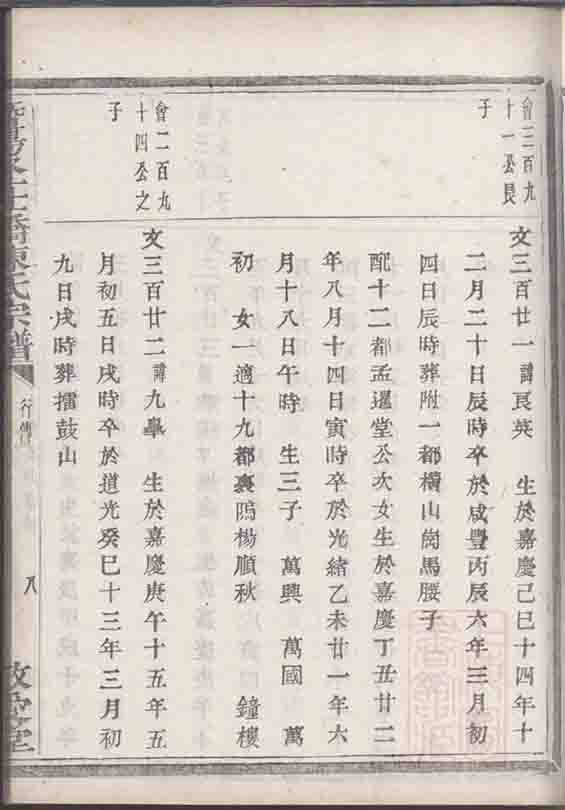 會三百九
十一公長
子
文三百廿一 諱良英 生於嘉慶己巳十四年十
二月二十日辰時卒於咸豐丙辰六年三月初
四日辰時葬附一都橫山崗馬腰子
配十二都孟暹堂公次女生於嘉慶丁丑廿二
年八月十四日寅時卒於光緒乙未廿一年六
月十八日午時 生三子 萬興 萬國 萬
初 女一適十九都裏隖楊順秋 鐘樓
會二百九
十四公之
子
文三百廿二 諱九皋 生於嘉慶庚午十五年五
月初五日戌時卒於道光癸巳十三年三月初
九日戌時葬擂鼓山
橋陳氏宗譜
行傳
八
堂